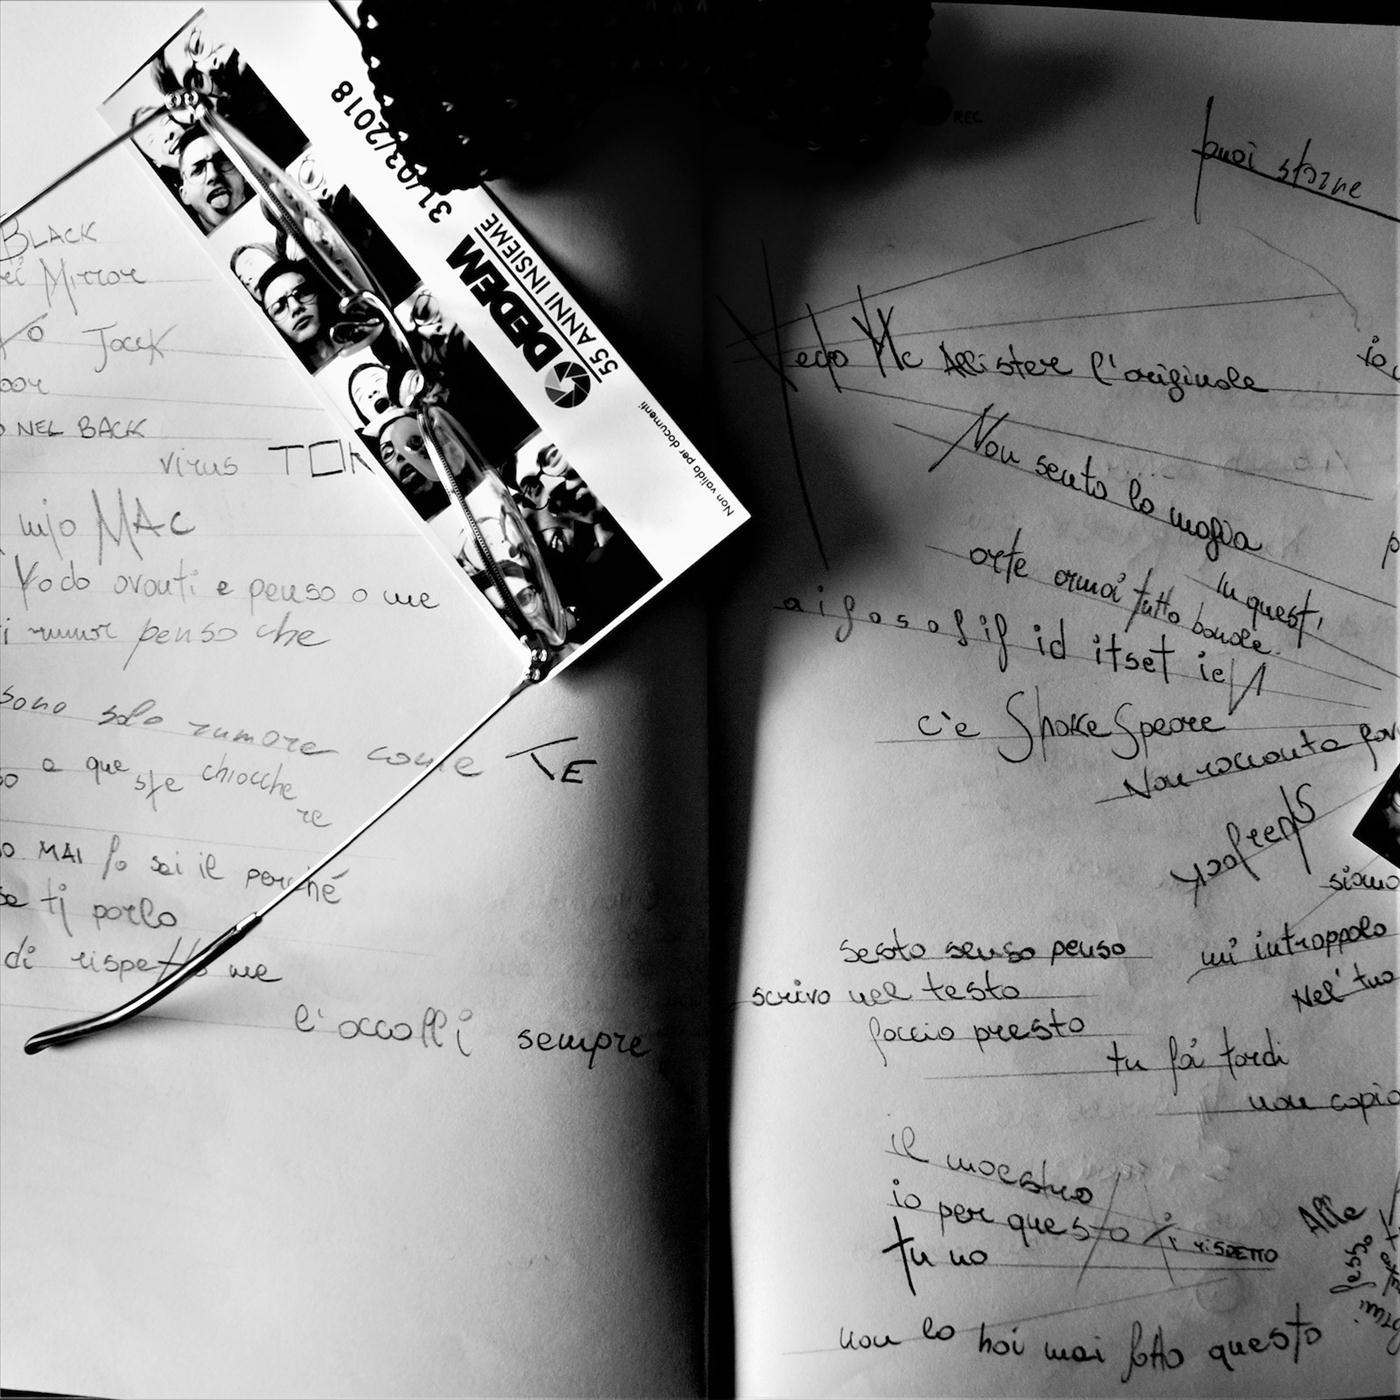 BLACK
Mirror
Jack
NEL BACK
virus TOR
mio MAC
Vado avanti e penso a me
penso che
sono solo rumore come TE
a queste chiacchere
MAI lo sai il perché
se ti parlo
di rispetto me
l'accolli sempre
31/03/2018
DEDEM
55 ANNI INSIEME
Non valida per documenti
REC
puoi starne
Vedo Mc Allister l'originale
Non sento la magia
arte ormai tutto banale
In questi
aifosolif id itset ieN
c'è ShakeSpeare
Non racconta
Sherlock
siamo
sesto senso penso
mi intrappolo
scrivo nel testo
Nel tuo
faccio presto
tu fai tardi
non copio
il maestro
io per questo ti RISPETTO
tu no
Alle
non lo hai mai fatto questo